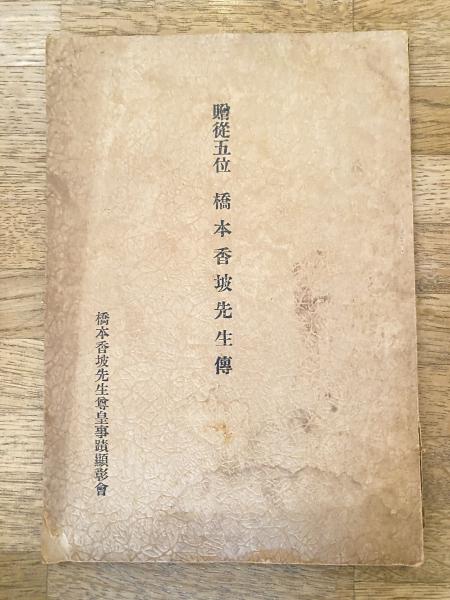 贈從五位　橋本香坡先生傳
橋本香坡先生尊皇事蹟顯彰會